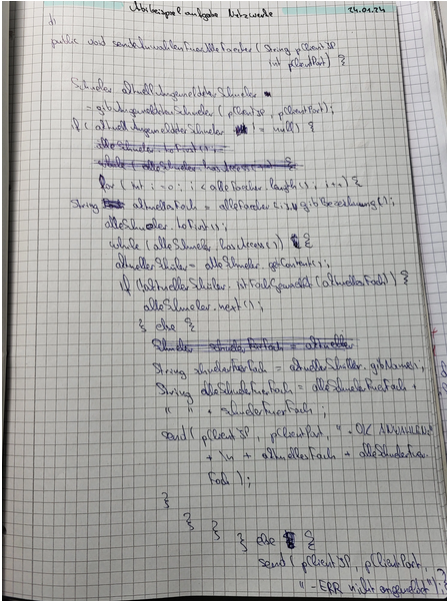 Abibeispiel aufgabe Netzwerke 24.01.24
public void sendeAnwahlenFuerAlleFaecher ( String pClientIP,
int pClientPort) {
Schueler aktuellAngemeldeterSchueler
= gibAngemeldetenSchueler ( pClientIP, pClientPort);
if ( aktuellAngemeldeterSchueler != null) {
alleSchueler.toFirst();
while ( alleSchueler.hasAccess()) {
for ( int i = 0; i < alleFaecher.length(); i++) {
String aktuellesFach = alleFaecher [i].gibBezeichnung();
alleSchueler.toFirst();
while ( alleSchueler.hasAccess()) {
aktuellerSchüler = alleSchueler.getContent();
if (!aktuellerSchüler.istFachGewaehlt (aktuellesFach)) {
alleSchueler.next();
} else {
Schueler schuelerFuerFach = aktueller
String schuelerFuerFach = aktuellerSchüler.gibName();
String alleSchuelerFuerFach = alleSchuelerFuerFach +
" " + schuelerFuerFach ;
send ( pClientIP, pClientPort, "+OK
+ \n + aktuellesFach + alleSchuelerFuer
Fach );
}
}
}
} else {
send ( pClientIP, pClientPort,
"-ERR nicht angemeldet"); }